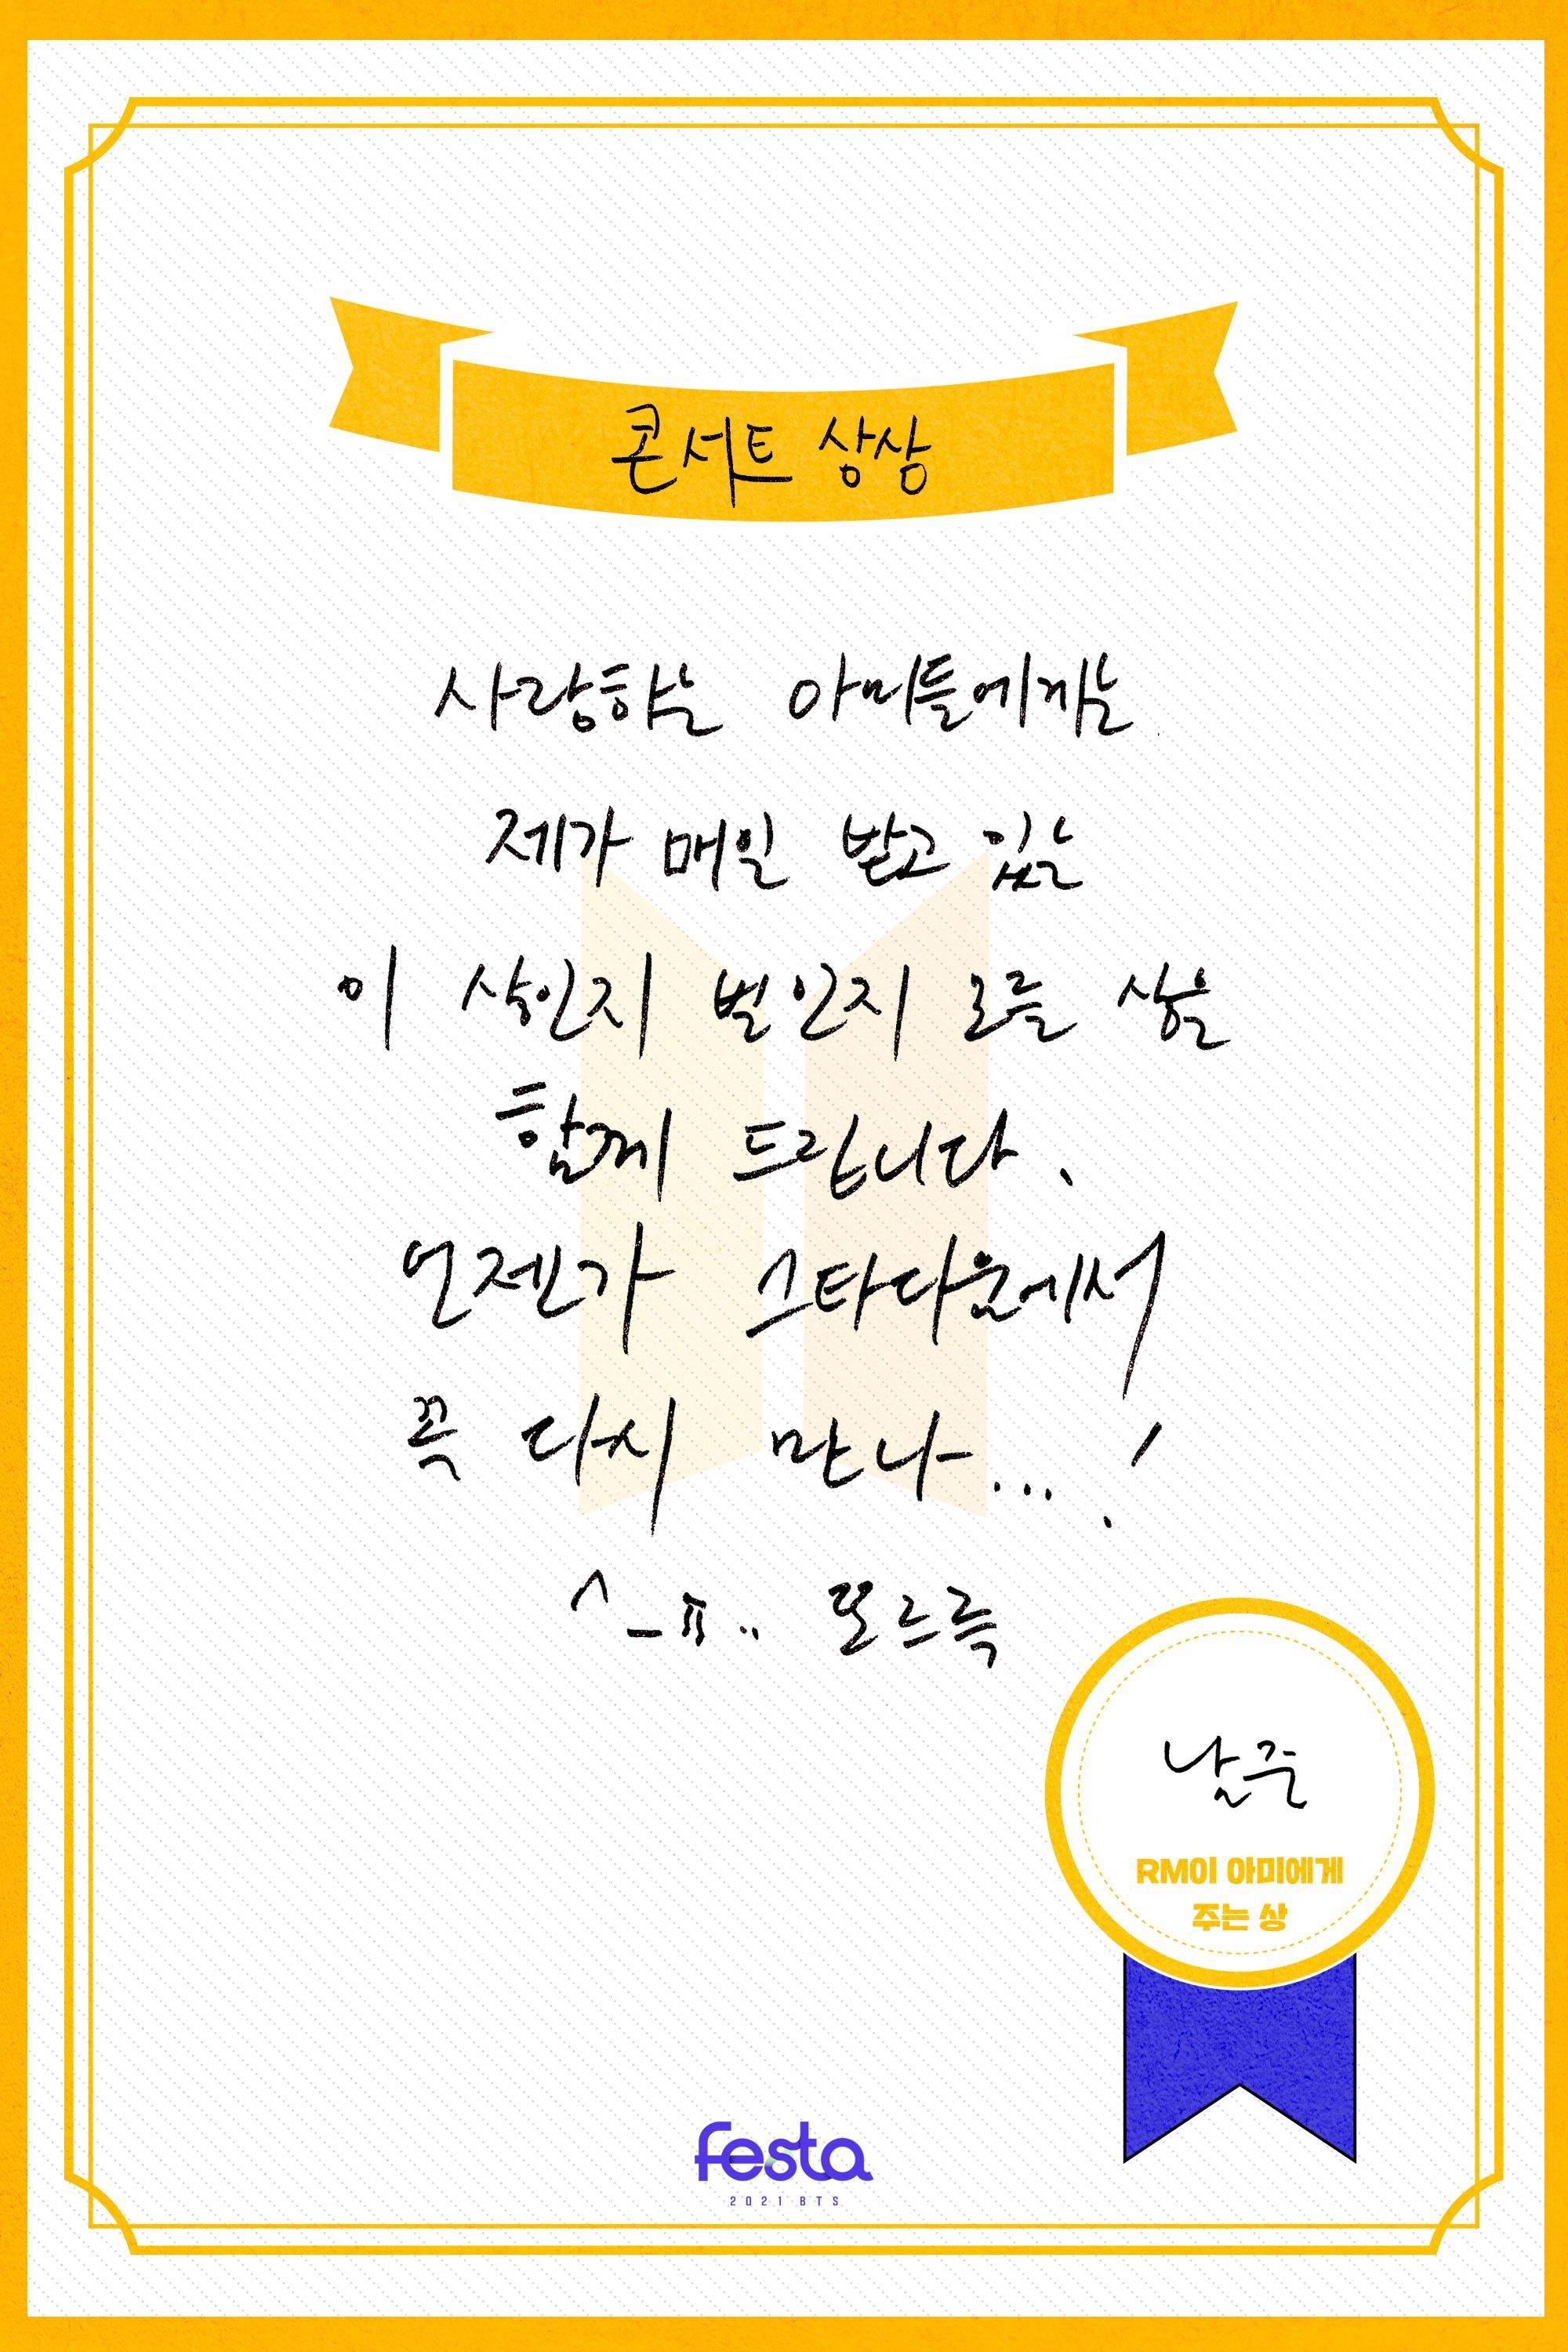 콘서트 상상
사랑하는 아미들에게는
제가 매일 받고 있는
이 상인지 벌인지 모를 상을
함께 드립니다.
언젠가 스타디움에서
꼭 다시 만나...!
^_ㅠ..
남준
RM이 아미에게
주는 상
festa
2021 BTS